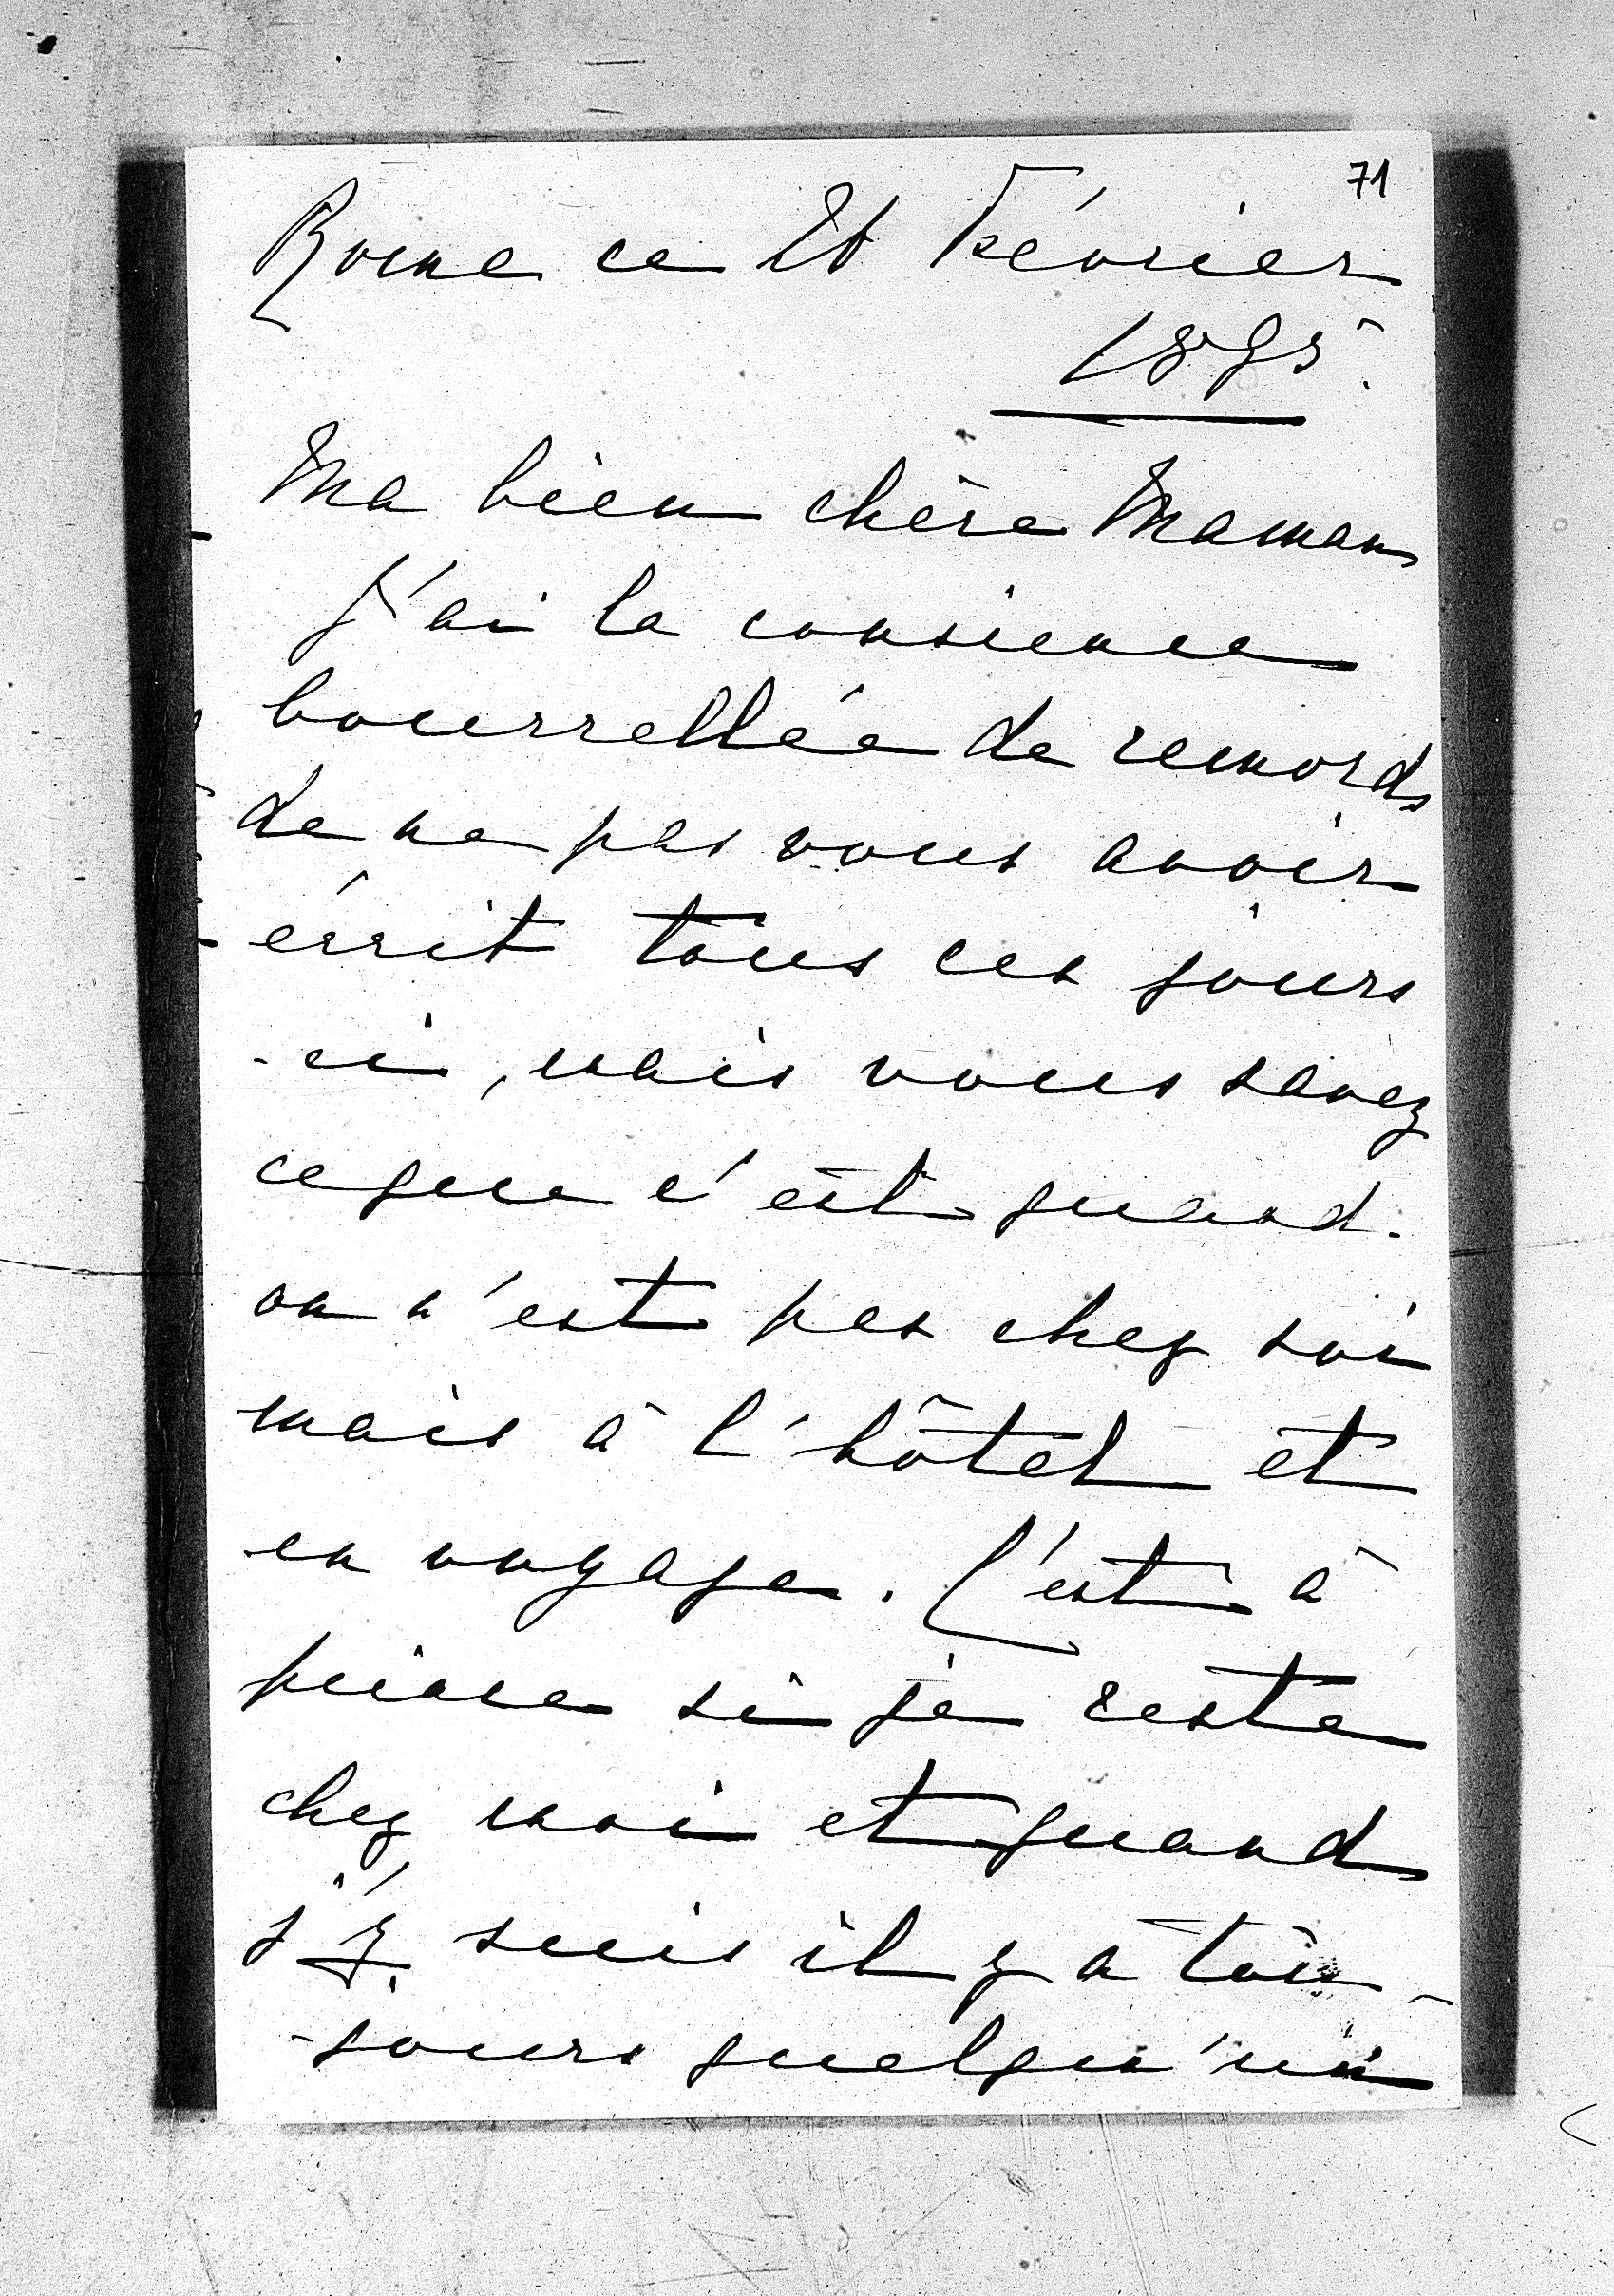 71
Rome ce 26 Février
1895.
Ma bien chère Maman
J'ai la consience
bourrellée de remords
de ne pas vous avoir
écrit tous ces jours
-ci, mais vous savez
ce que c'est quand
on n'est pas chez soi
mais à l'hôtel et
en voyage. C'est à
peine si je reste
chez moi et quand
j'y suis il y a tou-
-jours quelqu'un